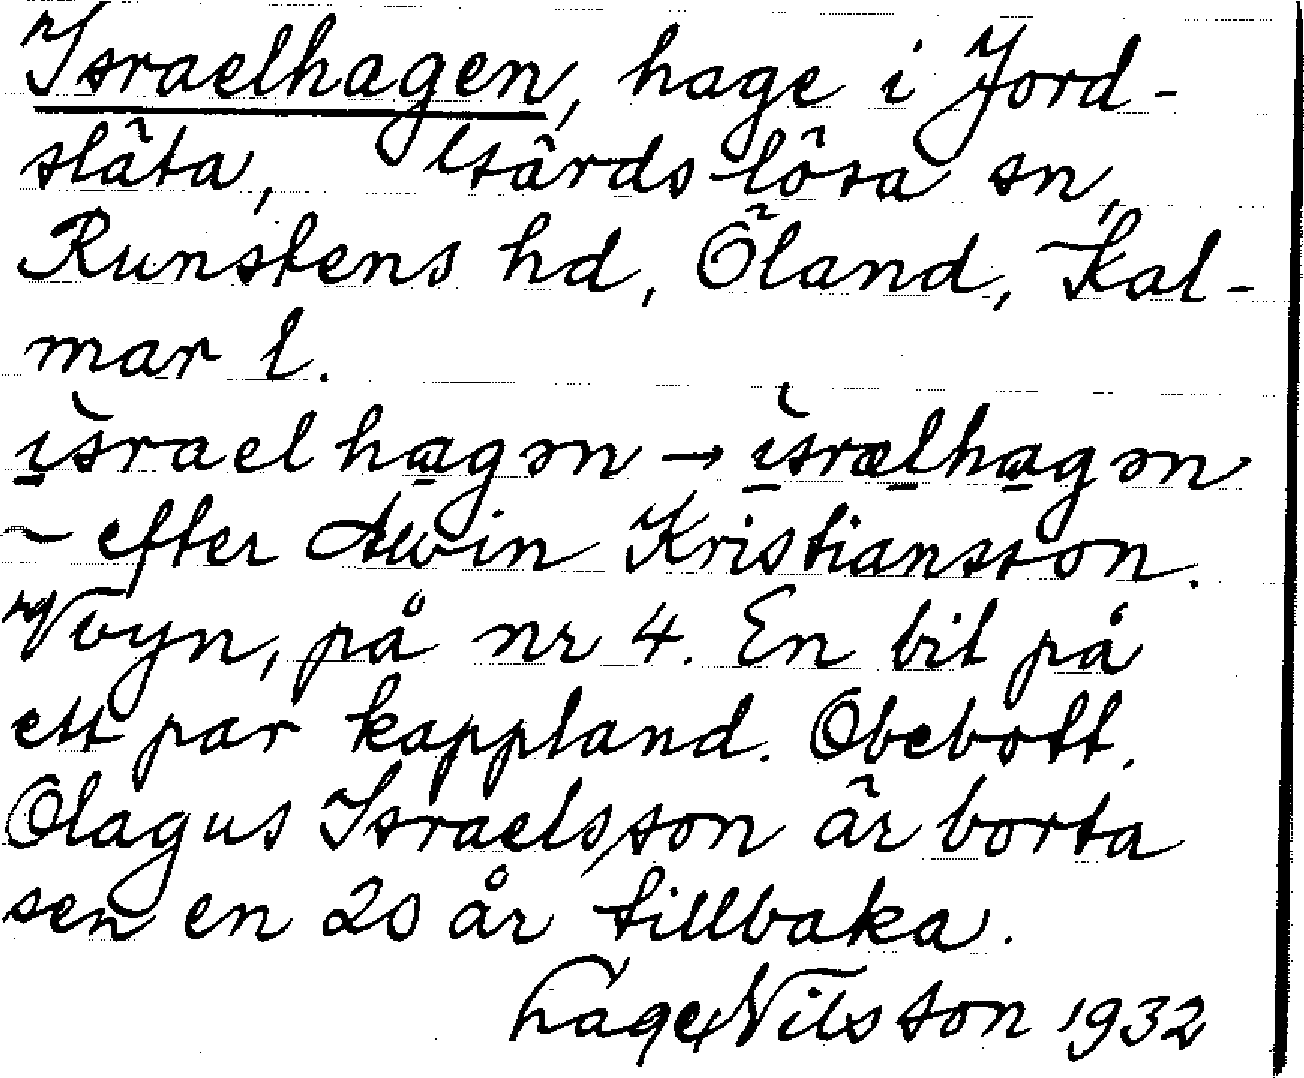 Israelhagen, hage i Jord-
släta, Gärdslösa sn,
Runstens hd, Öland, Kal-
mar l.
ìsraelhagən → ìsrælhagən
~ efter Alwin Kristiansson.
Nöyn, på nr 4. En bit på
ett par kappland. Obebott.
Olagus Israelsson är borta
sen en 20 år tillbaka.
Åage Nilsson 1932